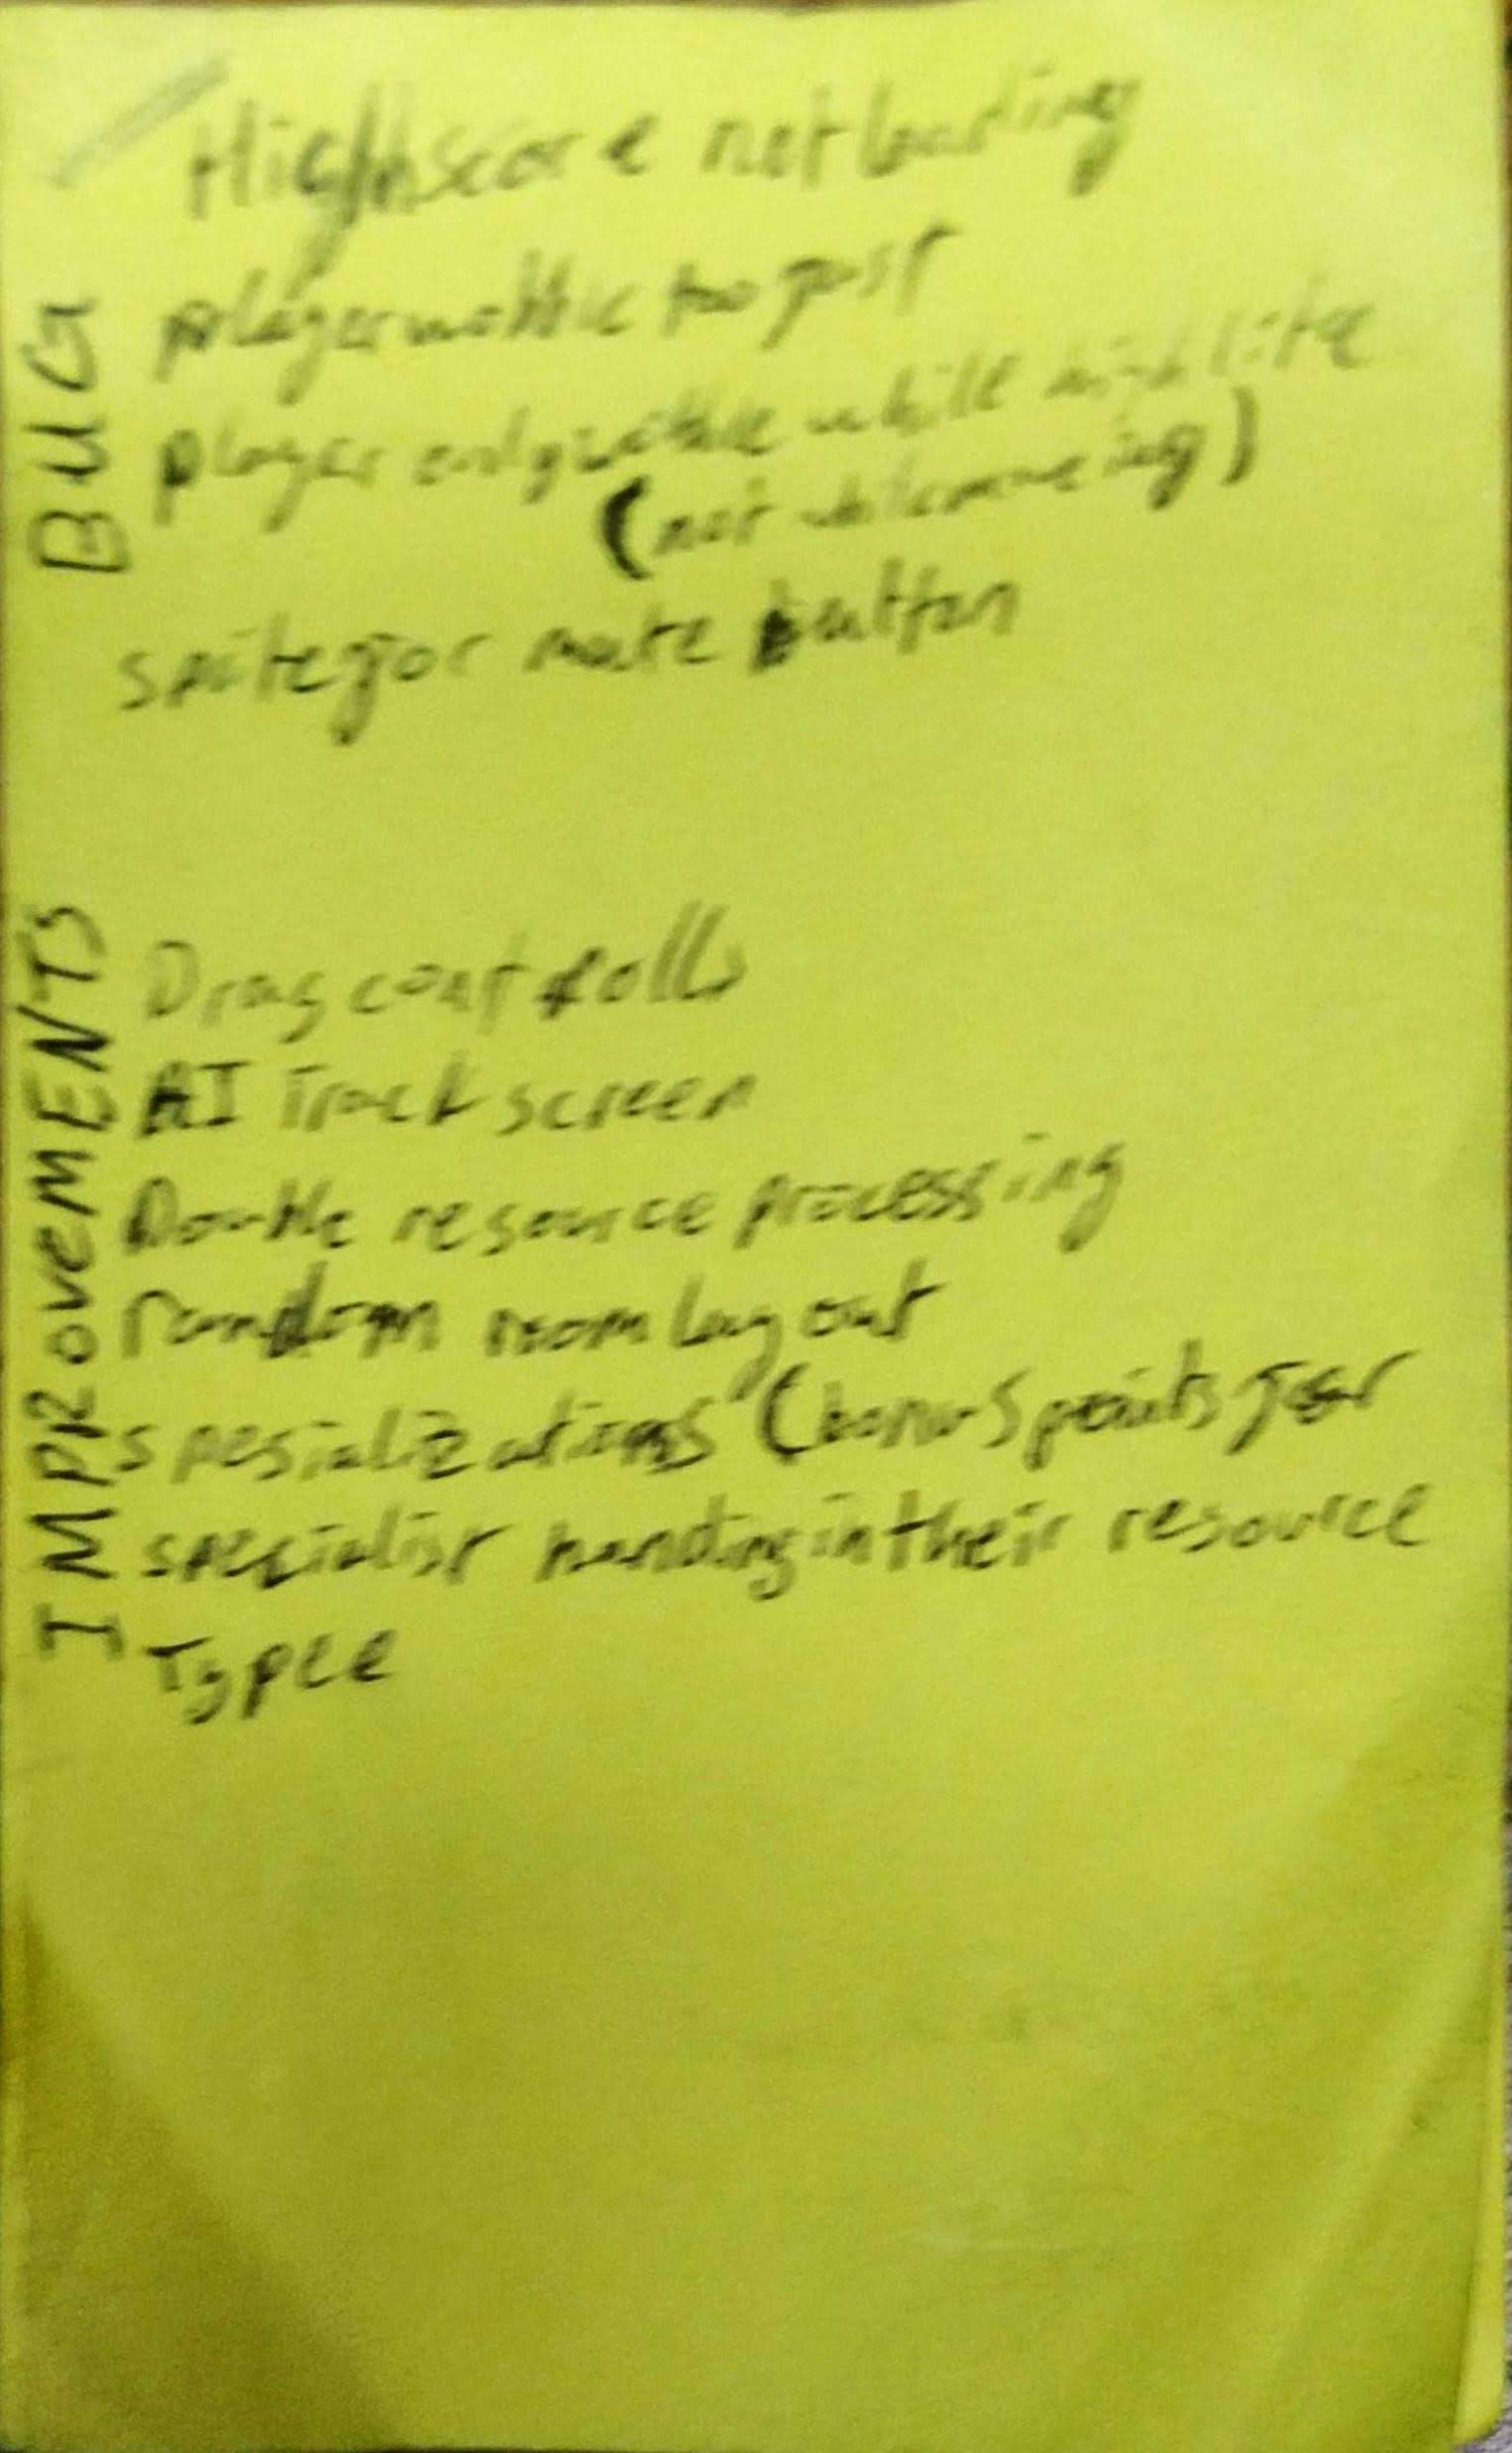 BUG
Highscore not loading
player wobble too fast
player only wobble while highlite
(not
sprite for mute button
IMPROvEMENTS
Drag controlls
AI Track screen
Double resource processing
random room lay out
spesializations (bonus points for
specialist handing in their resource
Typee